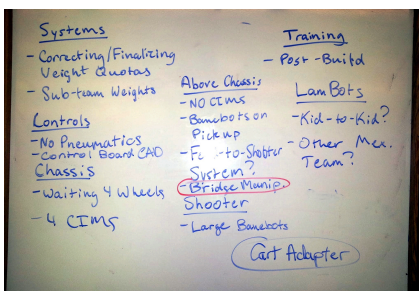 Systems
- Correcting/Finalizing
Weight Quotas
- Sub-team Weights
Controls
- No Pneumatics
- Control Board CAD
Chassis
- Waiting 4 Wheels
- 4 CIMS
Above Chassis
- NO CIMS
- Banebots on
Pickup
- to-Shooter
System?
- Bridge Manip.
Shooter
- Large Banebots
Training
- Post-Build
Lam Bots
- Kid-to-Kid?
- Other Mex.
Team?
Cart Adapter